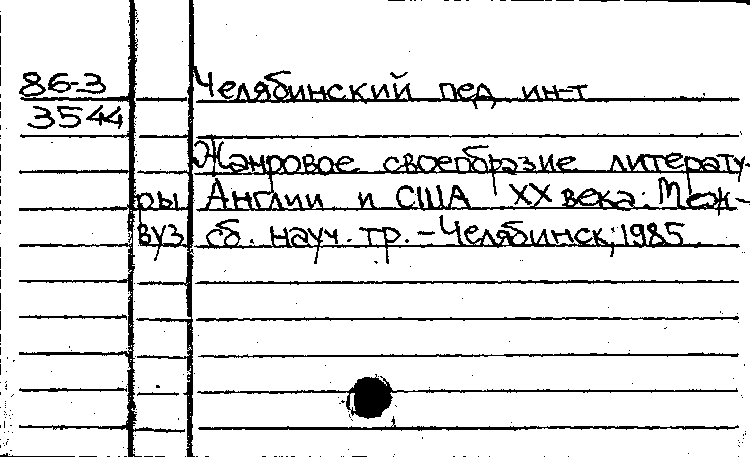 86-3
3544
Челябинский пед ин-т
Жанровое своеобразие литерату-
ры Англии и США XX века: Меж-
вуз сб. науч. тр. – Челябинск, 1985.